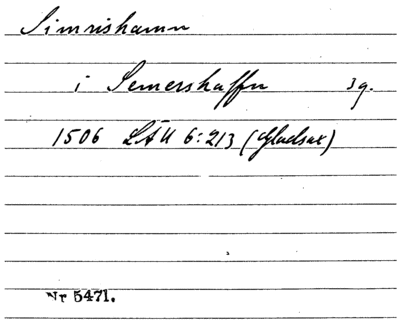 Simrishamn
i Semershaffn 3 g.
1506 LÄU 6:213 (Gladsax)
Nr 5471.